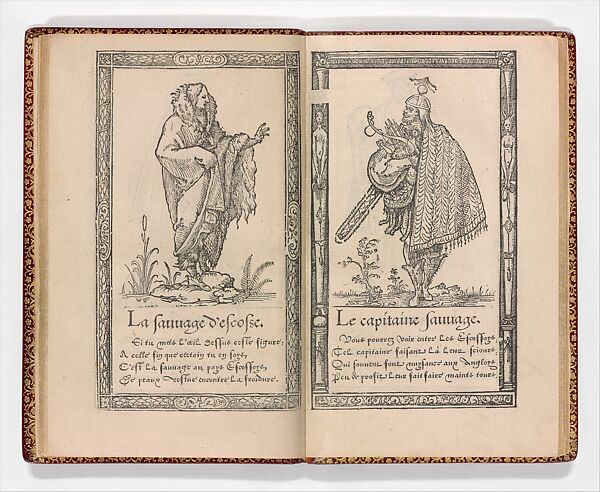 La sauuage d'escosse.
Si tu metz l'œil dessus ceste figure,
A celle fin que certain tu en soys,
C'est la sauuage au pays Escossoys,
De peaux vestue encontre la froidure.
Le capitaine sauuage.
Vous pourrez voir entre les Escossoys
Tel capitaine faisant là leur seiour,
Qui souuent font nuysance aux Angloys
Peu de profit leur fait faire maints tours